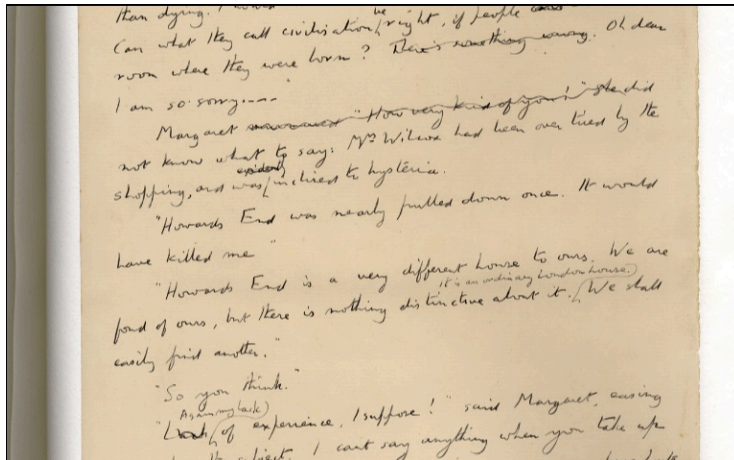 than dying.
Can what they call civilisation be right, if people
room where they were born? There's something wrong. Oh dear
I am so sorry....
Margaret "How very kind of you!" She did
not know what to say: Mrs Wilcox had been over tired by the
shopping, and was evidently inclined to hysteria.
"Howards End was nearly pulled down once. It would
have killed me"
"Howards End is a very different house to ours. We are
fond of ours, but there is nothing distinctive about it. It is an ordinary London house. We shall
easily find another."
"So you think."
"Again my lack of experience, I suppose!" said Margaret, easing
the subject. I can't say anything when you take up